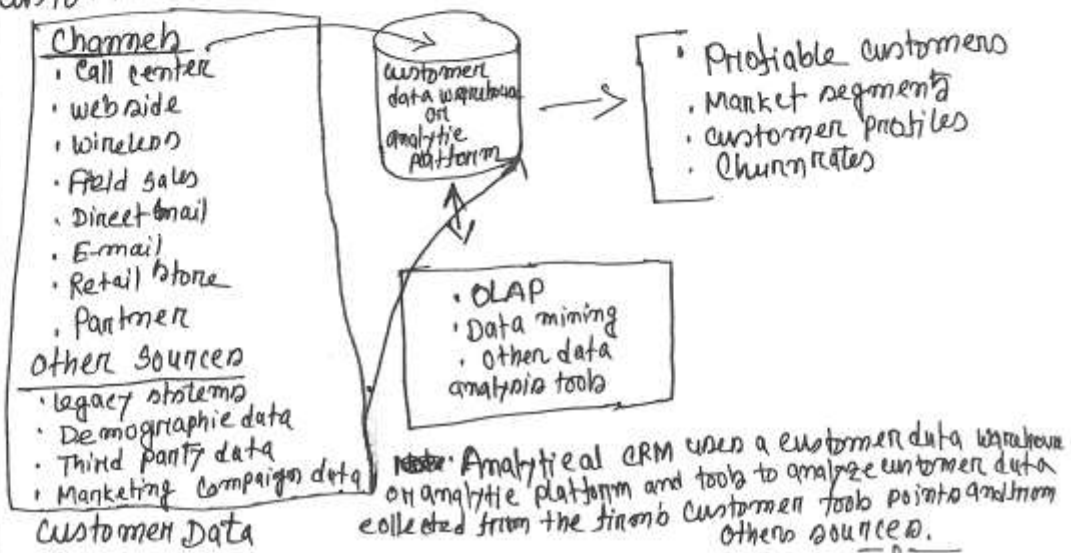 Channels
• Call center
• webside
• wireless
• Field sales
• Direct mail
• E-mail
• Retail store
• Partner
Other Sources
• Legacy systems
• Demographic data
• Third party data
• Marketing Compaign data
Customer Data
customer
data warehouse
or
analytic
platform
• OLAP
• Data mining
• Other data
analysis tools
• Profiable customers
• Market segments
• customer profiles
• Churn rates
Analytical CRM uses a customer data warehouse
or analytic platform and tools to analyze customer data
collected from the firm's customer tools points and from
others sources.